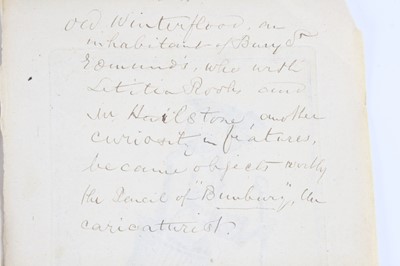 Old Winterflood, an
inhabitant of Bury St
Edmund's, who with
Letitia Rooks and
Mr Hailstone, another
curiosity in features,
became objects worthy
the Pencil of "Bunbury", the
caricaturist.